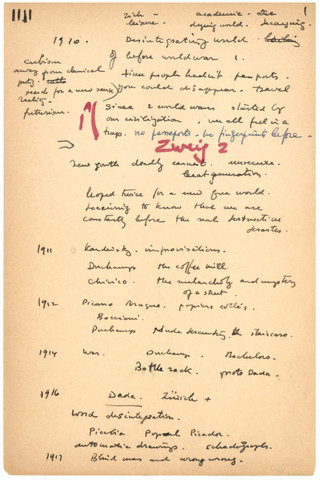 rich - academic - size
leisure. dying world. decaying
1910. Disintegrating world
cubism
away from classical
purity.
search for a new
reality.
futurism.
before world war 1.
time people hadn't passports.
you could disappear - travel
Since 2 world wars started by
our civilisation, we all feel in a
trap. no passports - no fingerprints before -
Zweig 2
New youth deadly earnest. insecure.
beat generation.
hoped twice for a new free world.
to know that we are
constantly before the real destructive
disaster.
1911 Kandisky - improvisations.
Duchamps the coffee mill.
Chirico. the melancholy and mystery
of a street.
1912 Picasso Braque. papiers collés.
Boccioni.
Duchamps Nude descending the staircase.
1914 War. Duchamp. Bachelors.
Bottle rack. proto Dada.
1916 Dada. Zürich +
Word disintegration.
Picabia Picador.
automatic drawings. schadographs.
1917 Blind man and wrong wrong.